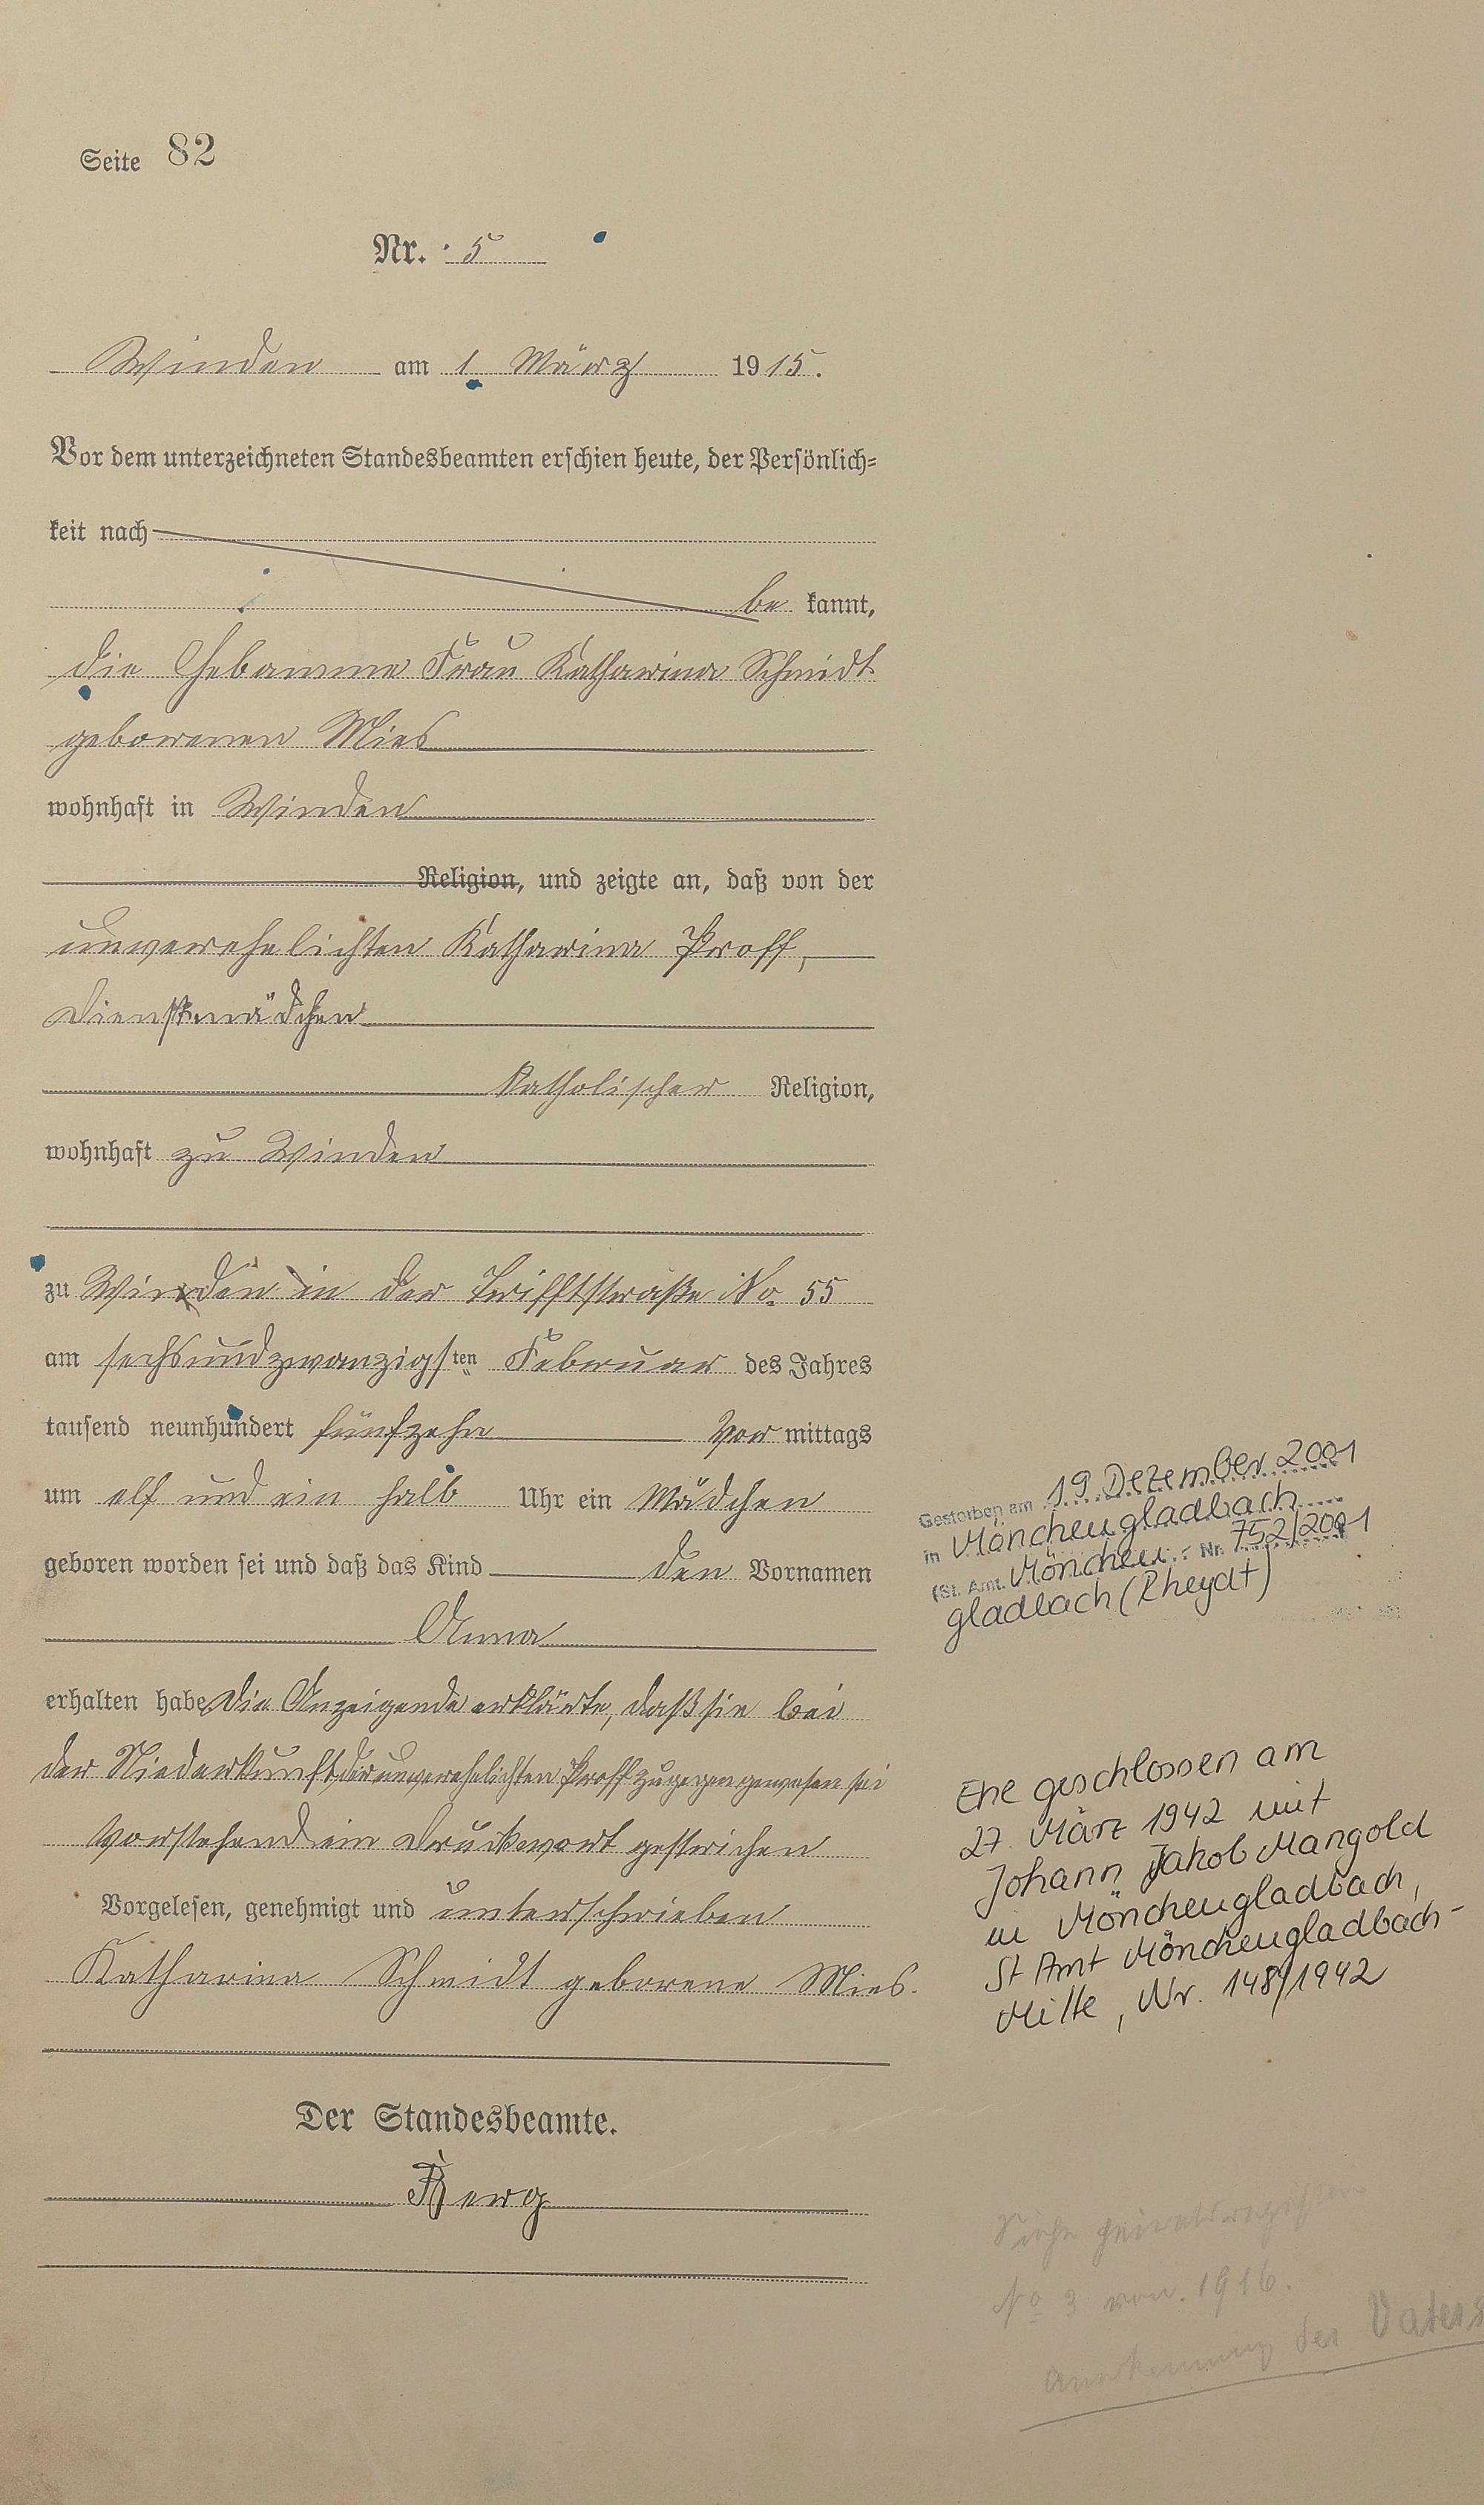 Seite 82
Nr. 5
Winden am 1. März 1915.
Vor dem unterzeichneten Standesbeamten erschien heute, der Persönlich-
keit nach
be kannt,
die Hebamme Frau Katharina Schmidt
geborenen Mies
wohnhaft in Winden
Religion, und zeigte an, daß von der
unverehelichten Katharina Proff,
Dienstmädchen
katholischer Religion,
wohnhaft zu Winden
zu Winden in der Triftstraße No. 55
am sechsundzwanzigsten Februar des Jahres
tausend neunhundert fünfzehn Vor mittags
um elf und ein halb Uhr ein Mädchen
geboren worden sei und daß das Kind den Vornamen
Anna
erhalten habe Die Anzeigende erklärte, daß sie bei
der Niederkunft der unverehelichten Proff zugegen gewesen sei
Vorstehend ein Druckwort gestrichen
Vorgelesen, genehmigt und unterschrieben
Katharina Schmidt geborene Mies.
Der Standesbeamte.
Berg
Gestorben am 19. Dezember 2001
in Mönchengladbach
(St. Amt. Mönchen- Nr. 752/2001
gladbach (Rheydt)
Ehe geschlossen am
27. März 1942 mit
Johann Jakob Mangold
in Mönchengladbach,
St Amt Mönchengladbach-
Mitte, Nr. 148/1942
Siehe Heiratsregister
No 3 von 1916.
Anerkennung des Vaters